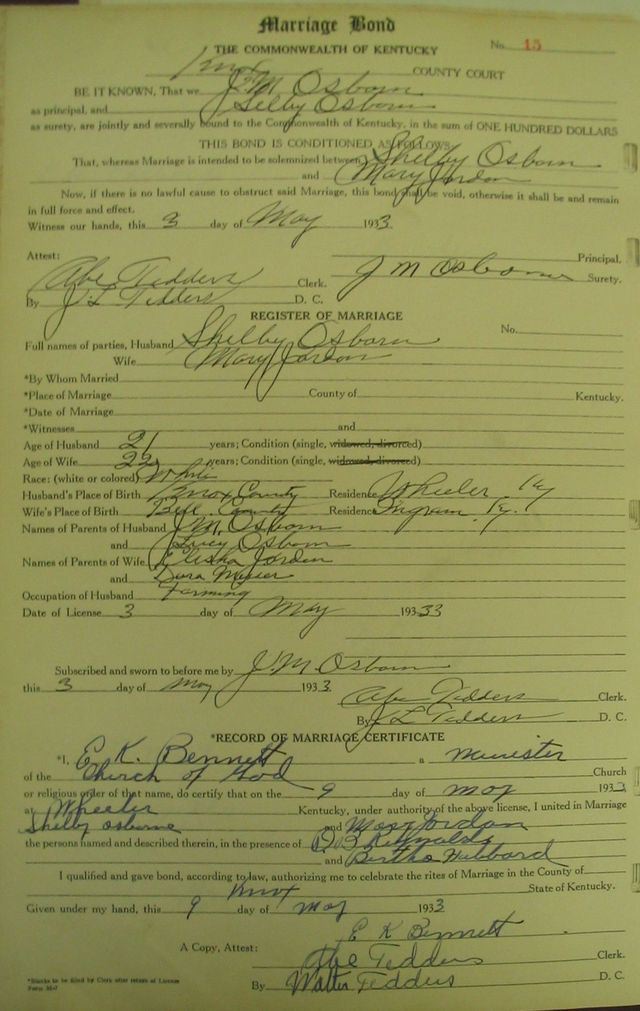 Marriage Bond
THE COMMONWEALTH OF KENTUCKY No. 15
Knox COUNTY COURT
BE IT KNOWN, That we J. M. Osborn
as principal, and Selby Osborn
as surety, are jointly and severally bound to the Commonwealth of Kentucky, in the sum of ONE HUNDRED DOLLARS
THIS BOND IS CONDITIONED AS FOLLOWS
That, whereas Marriage is intended to be solemnized between Shelby Osborn
and Mary Jordon
Now, if there is no lawful cause to obstruct said Marriage, this bond shall be void, otherwise it shall be and remain
in full force and effect.
Witness our hands, this 3 day of May 1933
Attest: Principal.
Abe Tedders Clerk. J M Osborne Surety.
By J. L Tedders D. C.
REGISTER OF MARRIAGE
Full names of parties, Husband Shelby Osborn No.
Wife Mary Jordon
*By Whom Married
*Place of Marriage County of Kentucky.
*Date of Marriage
*Witnesses and
Age of Husband 21 years; Condition (single, widowed, divorced)
Age of Wife 22 years; Condition (single, widowed, divorced)
Race: (white or colored) White
Husband's Place of Birth Knox County Residence Wheeler Ky
Wife's Place of Birth Bell County Residence Ingram Ky.
Names of Parents of Husband J. M. Osborn
and Lucy Osborn
Names of Parents of Wife Elisha Jordon
and Dora
Occupation of Husband Farming
Date of License 3 day of May 19333
Subscribed and sworn to before me by J. M. Osborn
this 3 day of May 1933.
Abe Tedders Clerk.
By J L Tedders D. C.
*RECORD OF MARRIAGE CERTIFICATE
*I, E. K. Bennett a Minister
of the Church of God Church
or religious order of that name, do certify that on the 9 day of May 1933
at Wheeler Kentucky, under authority of the above license, I united in Marriage
Shelby Osborne and Mary Jordan
the persons named and described therein, in the presence of Reynolds
and Bertha Hubbard
I qualified and gave bond, according to law, authorizing me to celebrate the rites of Marriage in the County of
Knox State of Kentucky.
Given under my hand, this 9 day of May 1933
E K Bennett
A Copy, Attest: Abe Tedders Clerk.
By Walter Tedders D. C.
*Blanks to be filled by Clerk after return of License